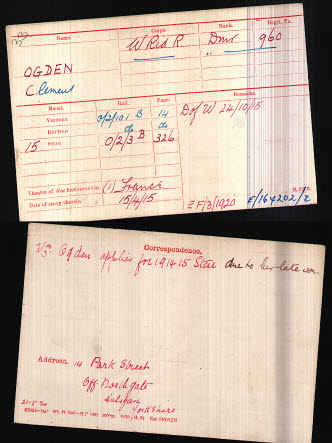 Name. Corps. Rank. Regtl. No.
W Rid R. Dmr 960
OGDEN
Clement
Medal. Roll. Page. Remarks.
VICTORY O/2/101 B 14 D of W 24/10/15
BRITISH do do
15 STAR O/2/3 B 326
Theatre of War first served in (1) France
Date of entry therein 15/4/15
E F/3/1920 E/164202/2
Correspondence.
Ogden applies for 1914-15 Star due to her late son.
Address. 14 Park Street
Off Northgate
Halifax
Yorkshire
21-5-20